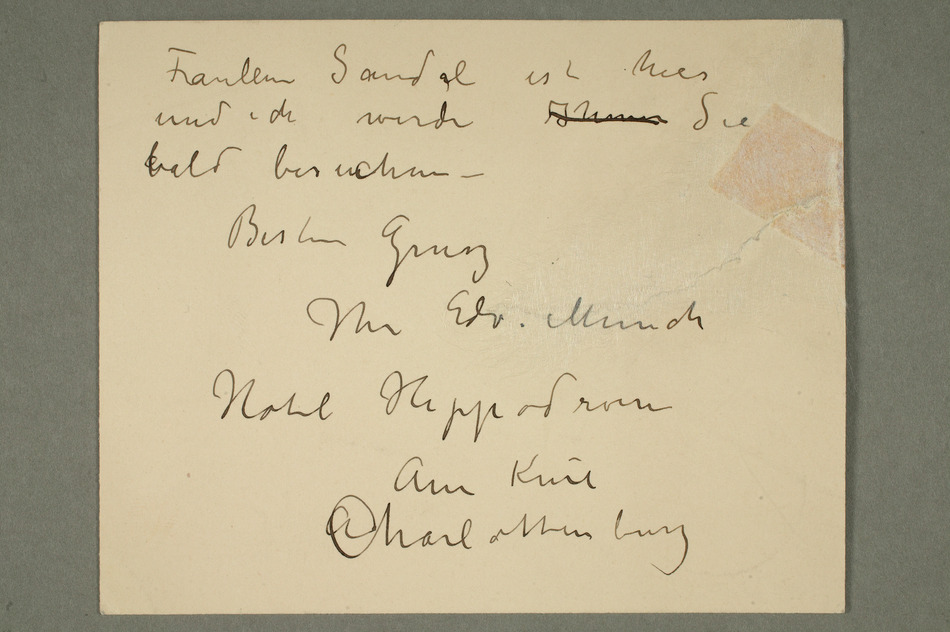 Fraulein Sandel ist hier
und ich werde Ihnen Sie
bald besuchen –
Besten Grusz
Ihr Edv. Munch
Hotel Hippodrom
Am Knie
Charlottenburg